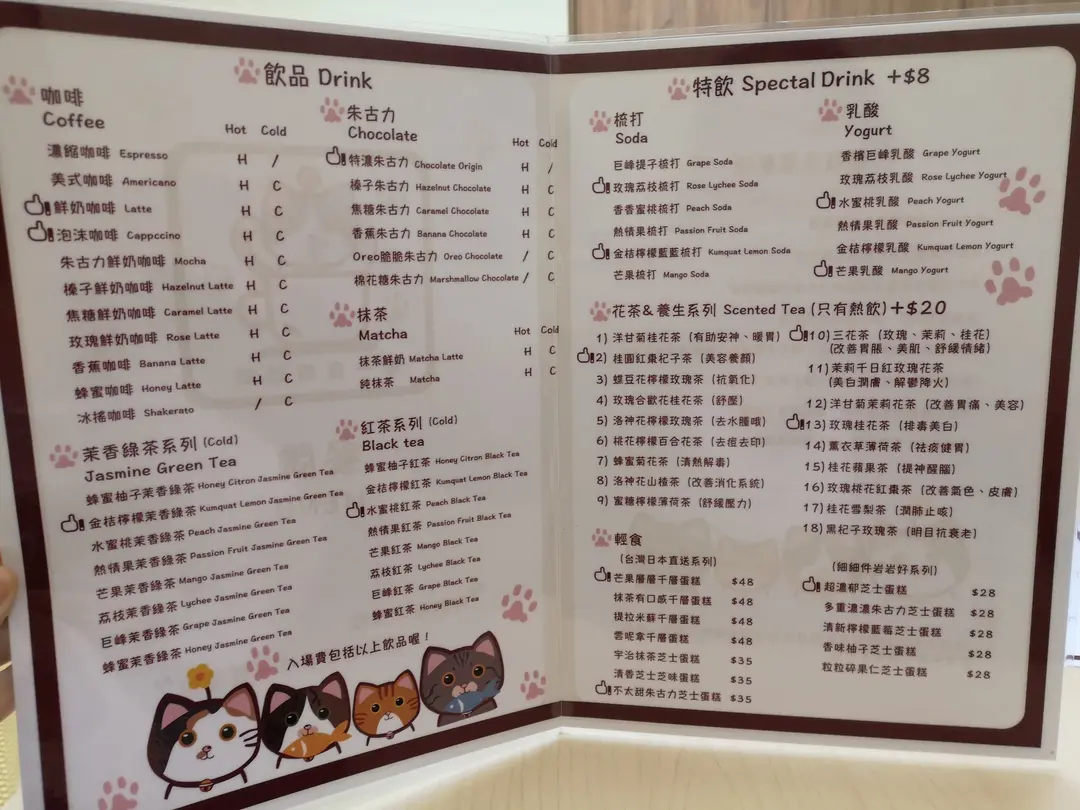 飲品 Drink
咖啡
Coffee
Hot Cold
濃縮咖啡 Espresso H /
美式咖啡 Americano H C
鮮奶咖啡 Latte H C
泡沫咖啡 Cappccino H C
朱古力鮮奶咖啡 Mocha H C
榛子鮮奶咖啡 Hazelnut Latte H C
焦糖鮮奶咖啡 Caramel Latte H C
玫瑰鮮奶咖啡 Rose Latte H C
香蕉咖啡 Banana Latte H C
蜂蜜咖啡 Honey Latte H C
冰搖咖啡 Shakerato / C
朱古力
Chocolate
Hot Cold
特濃朱古力 Chocolate Origin H /
榛子朱古力 Hazelnut Chocolate H C
焦糖朱古力 Caramel Chocolate H C
香蕉朱古力 Banana Chocolate H C
Oreo脆脆朱古力 Oreo Chocolate / C
棉花糖朱古力 Marshmallow Chocolate / C
抹茶
Matcha
Hot Cold
抹茶鮮奶 Matcha Latte H C
純抹茶 Matcha H C
茉香綠茶系列 (Cold)
Jasmine Green Tea
蜂蜜柚子茉香綠茶 Honey Citron Jasmine Green Tea
金桔檸檬茉香綠茶 Kumquat Lemon Jasmine Green Tea
水蜜桃茉香綠茶 Peach Jasmine Green Tea
熱情果茉香綠茶 Passion Fruit Jasmine Green Tea
芒果茉香綠茶 Mango Jasmine Green Tea
荔枝茉香綠茶 Lychee Jasmine Green Tea
巨峰茉香綠茶 Grape Jasmine Green Tea
蜂蜜茉香綠茶 Honey Jasmine Green Tea
紅茶系列 (Cold)
Black tea
蜂蜜柚子紅茶 Honey Citron Black Tea
金桔檸檬紅茶 Kunquat Lemon Black Tea
水蜜桃紅茶 Peach Black Tea
熱情果紅茶 Passion Fruit Black Tea
芒果紅茶 Mango Black Tea
荔枝紅茶 Lychee Black Tea
巨峰紅茶 Grape Black Tea
蜂蜜紅茶 Honey Black Tea
入場費包括以上飲品喔！
特飲 Spectal Drink +$8
梳打
Soda
巨峰提子梳打 Grape Soda
玫瑰荔枝梳打 Rose Lychee Soda
香香蜜桃梳打 Peach Soda
熱情果梳打 Passion Fruit Soda
金桔檸檬藍藍梳打 Kumquat Lemon Soda
芒果梳打 Mango Soda
乳酸
Yogurt
香檳巨峰乳酸 Grape Yogurt
玫瑰荔枝乳酸 Rose Lychee Yogurt
水蜜桃乳酸 Peach Yogurt
熱情果乳酸 Passion Fruit Yogurt
金桔檸檬乳酸 Kumquat Lemon Yogurt
芒果乳酸 Mango Yogurt
花茶&養生系列 Scented Tea (只有熱飲)+$20
1) 洋甘菊桂花茶 (有助安神、暖胃)
2) 桂圓紅棗杞子茶 (美容養顏)
3) 蝶豆花檸檬玫瑰茶 (抗氧化)
4) 玫瑰合歡花桂花茶 (舒壓)
5) 洛神花檸檬玫瑰茶 (去水腫哦)
6) 桃花檸檬百合花茶 (去痘去印)
7) 蜂蜜菊花茶 (清熱解毒)
8) 洛神花山楂茶 (改善消化系統)
9) 蜜糖檸檬薄荷茶 (舒緩壓力)
10) 三花茶 (玫瑰、茉莉、桂花)
(改善胃脹、美肌、舒緩情緒)
11) 茉莉千日紅玫瑰花茶
(美白潤膚、解鬱降火)
12) 洋甘菊茉莉花茶 (改善胃痛、美容)
13) 玫瑰桂花茶 (排毒美白)
14) 薰衣草薄荷茶 (祛痰健胃)
15) 桂花蘋果茶 (提神醒腦)
16) 玫瑰桃花紅棗茶 (改善氣色、皮膚)
17) 桂花雪梨茶 (潤肺止咳)
18) 黑杞子玫瑰茶 (明目抗衰老)
輕食
(台灣日本直送系列)
芒果層層千層蛋糕 $48
抹茶有口感千層蛋糕 $48
提拉米蘇千層蛋糕 $48
雲呢拿千層蛋糕 $48
宇治抹茶芝士蛋糕 $35
清香芝士芝味蛋糕 $35
不太甜朱古力芝士蛋糕 $35
(細細件岩岩好系列)
超濃郁芝士蛋糕 $28
多重濃濃朱古力芝士蛋糕 $28
清新檸檬藍莓芝士蛋糕 $28
香味柚子芝士蛋糕 $28
粒粒碎果仁芝士蛋糕 $28